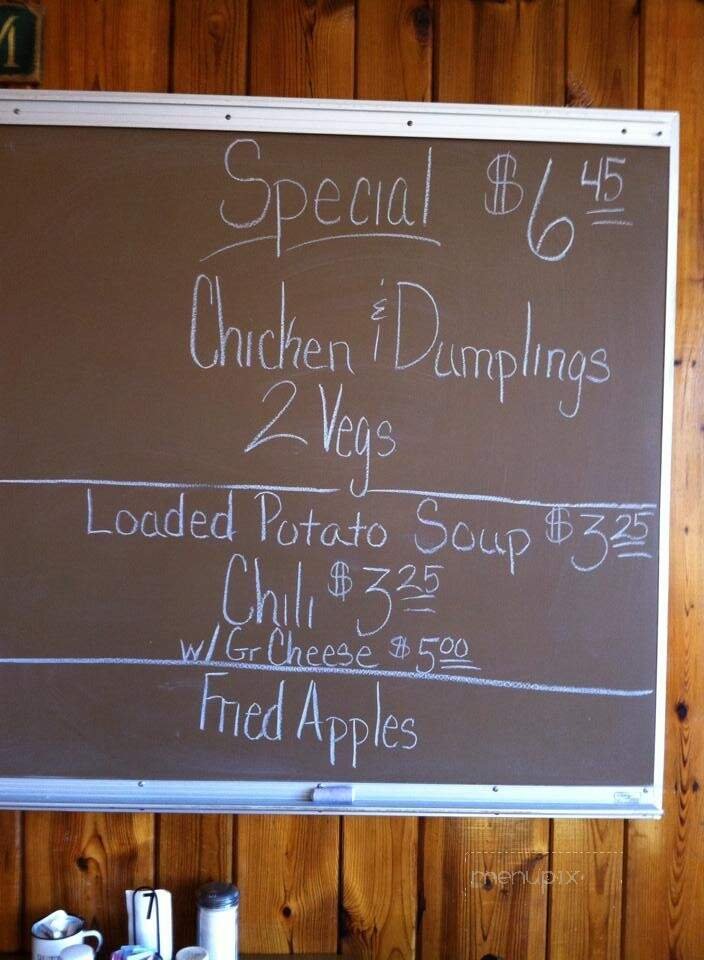 M
Special $6 45
Chicken & Dumplings
2 Vegs
Loaded Potato Soup $3 25
Chili $3 25
w/Gr Cheese $5 00
Fried Apples
menupix
7